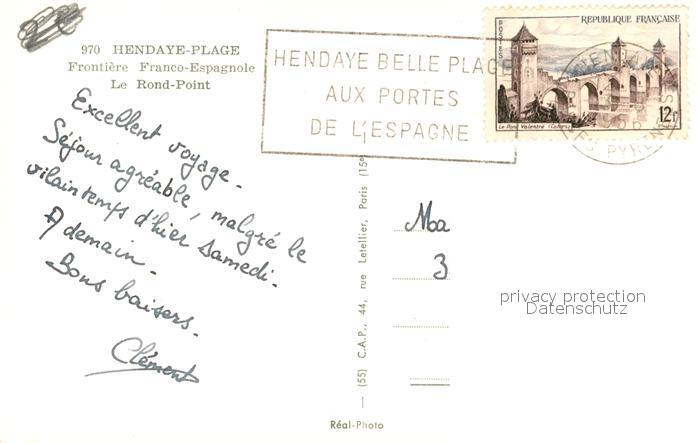 970 HENDAYE-PLAGE
Frontière Franco-Espagnole
Le Rond-Point
Excellent voyage.
Séjour agréable, malgré le
vilain temps d'hier samedi.
A demain.
Bons baisers.
Clément
HENDAYE BELLE PLAGE
AUX PORTES
DE L'ESPAGNE
POSTES
REPUBLIQUE FRANÇAISE
Le Pont Valentré (Cahors)
12F
PYRENEES
(55) C.A.P., 44, rue Letellier, Paris (15e
Ma
3
privacy protection
Datenschutz
Réal-Photo